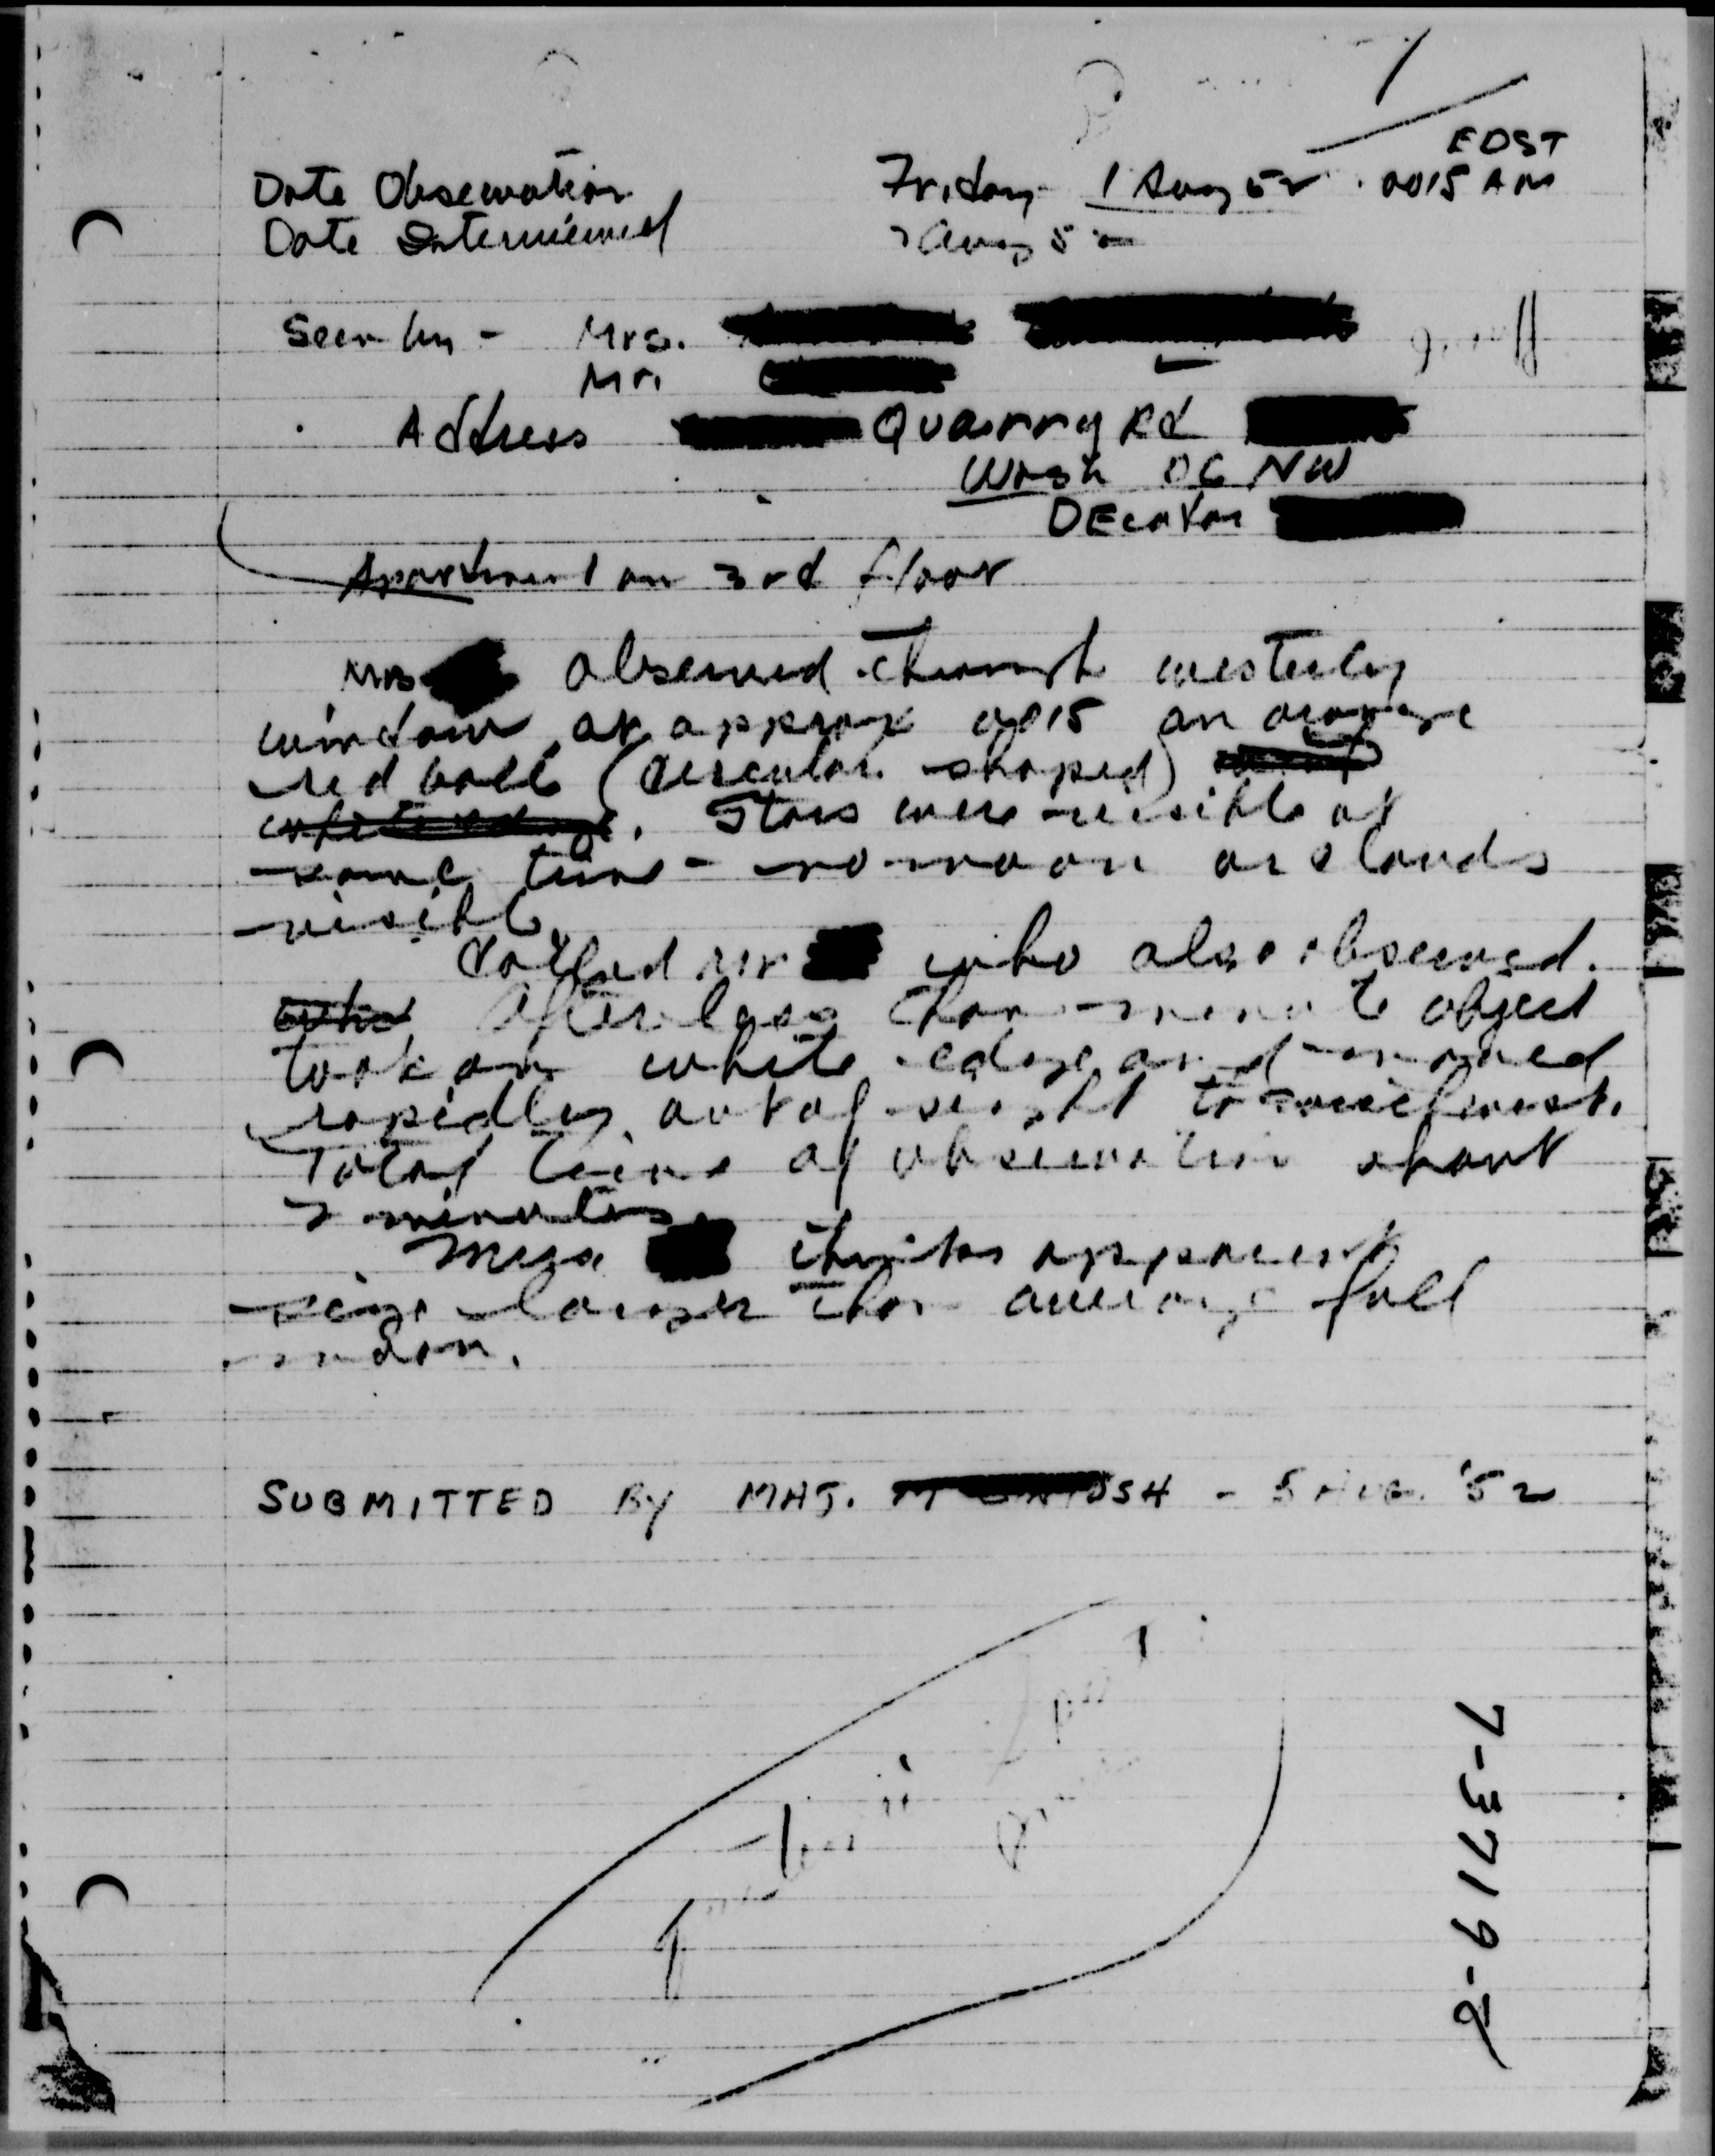 EDST
Date Observation Friday 1 Aug 52 . 0015 AM
Date Interviewed 2 Aug 52
Seen by - Mrs.
Mr.
Address Quarry Rd
Wash DC NW
DEcatur
Apartment on 3rd floor
Mrs observed through westerly
window at approx 0015 an orange
red ball (circular shaped)
. Stars were visible at
same time - no moon or clouds
visible.
Called Mr who also observed.
After less than minute object
took on white edge and moved
rapidly out of sight to
Total time of observation about
2 minutes.
Mrs thinks apparent
size larger than average full
moon.
SUBMITTED BY MAJ. OSH - 5 AUG. '52
7-3719-8